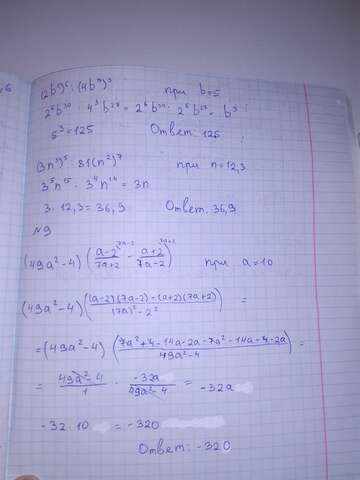 (2b⁵)⁶ : (4b⁹)³ при b=5
2⁶b³⁰ : 4³b²⁷ = 2⁶b³⁰ : 2⁶b²⁷ = b³
5³=125 Ответ: 125
(3n³)⁵ : 81(n²)⁷ при n=12,3
3⁵n¹⁵ : 3⁴n¹⁴ = 3n
3 · 12,3 = 36,9 Ответ. 36,9
№9
(49a²-4) (a-2/7a+2 ⁷ᵃ⁻² - a+2/7a-2 ⁷ᵃ⁺²) при a=10
(49a²-4) ((a-2)(7a-2)-(a+2)(7a+2)/(7a)²-2²) =
=(49a²-4) (7a²+4-14a-2a-7a²-14a-4-2a/49a²-4) =
= 49a²-4/1 · -32a/49a²-4 = -32a
-32·10 = -320
Ответ: -320